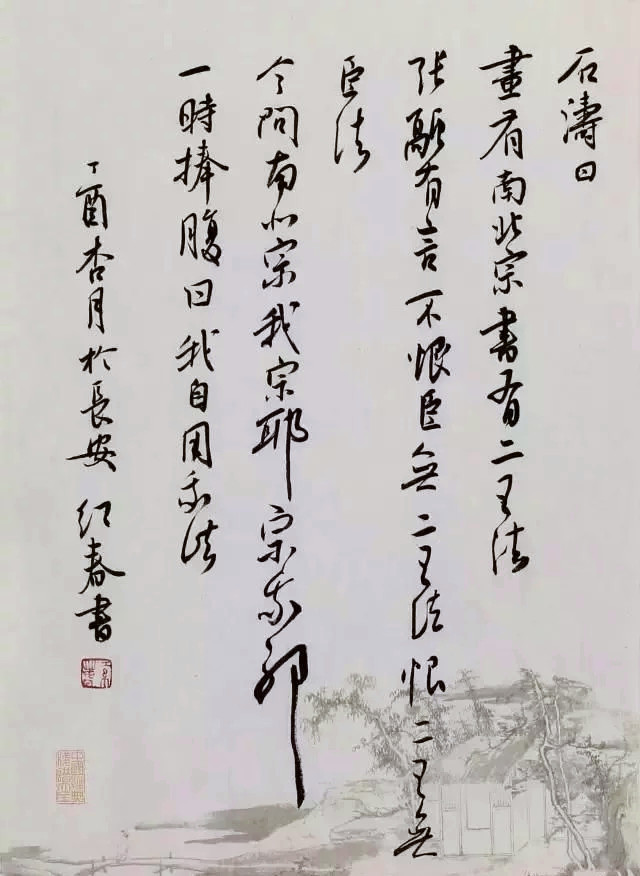 石濤曰
畫有南北宗書有二王法
張融有言不恨臣無二王法恨二王無
臣法
今問南北宗我宗耶宗我耶
一時捧腹曰我自用我法
丁酉杏月於長安 紅春書